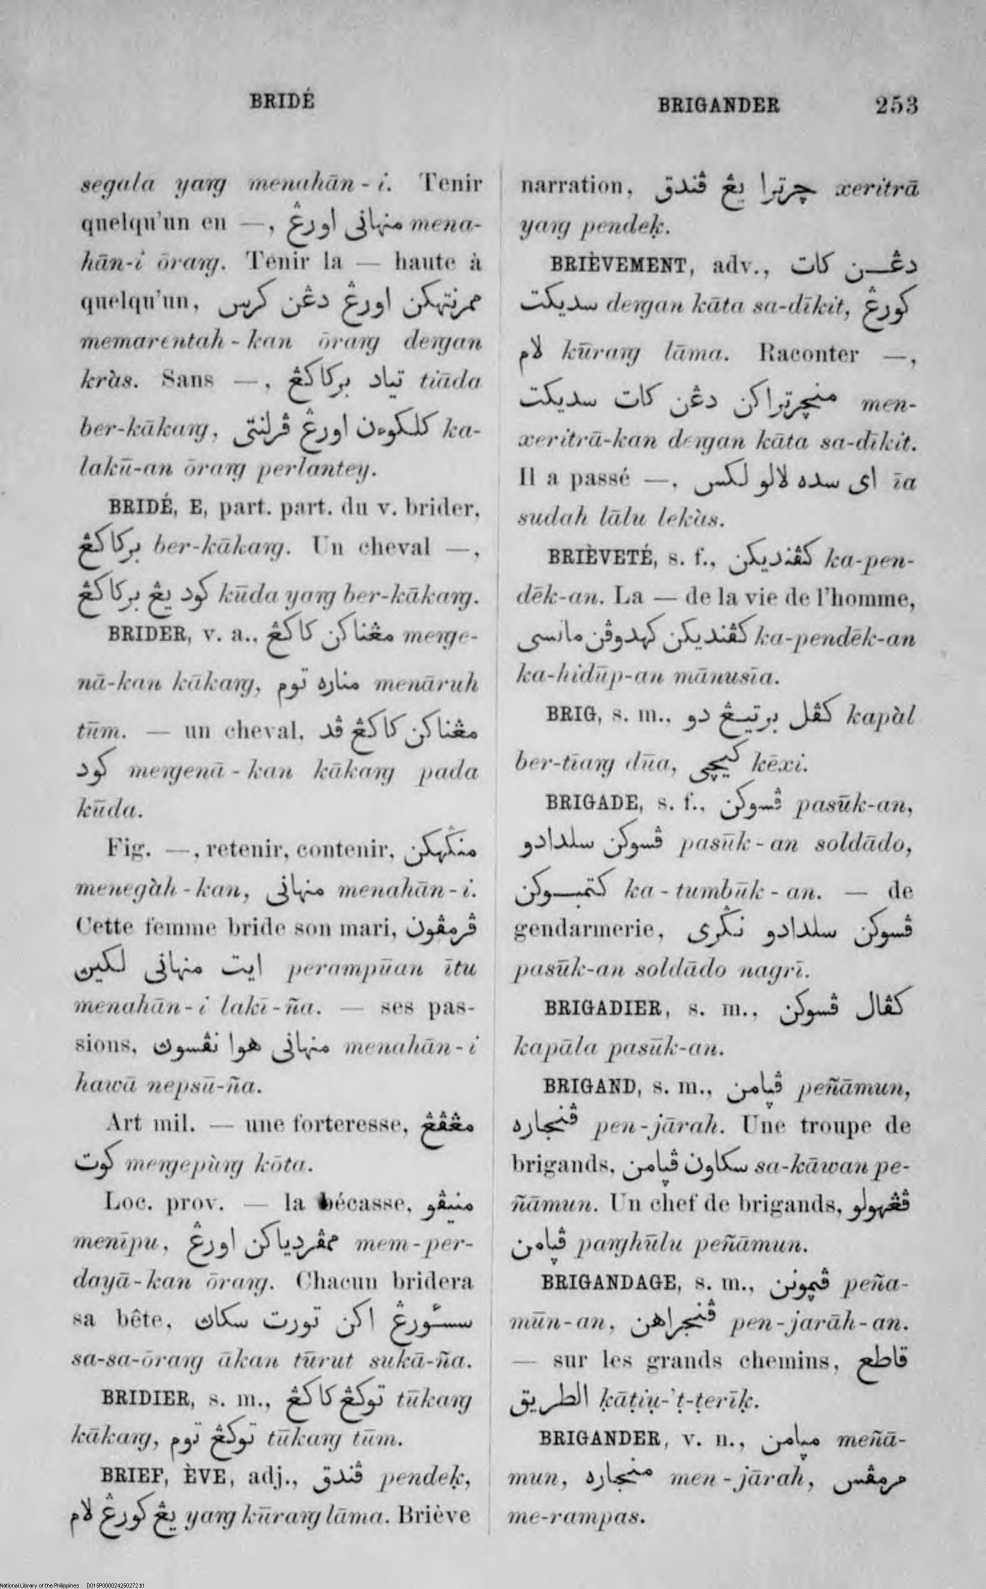 BRIDÉ
BRIGANDER 253
segala yaŋg menahān-i. Tenir
quelqu'un en —, منهانى اورڠ mena-
hān-i ōraŋg. Tenir la — haute à
quelqu'un, ممرنتهكن اورڠ دڠن كرس
memarentah-kan ōraŋg deŋgan
kràs. Sans —, تياد بركاكڠ tiāda
ber-kākaŋg, كلكوءن اورڠ ڤرلنتى ka-
lakū-an ōraŋg perlantey.
BRIDÉ, E, part. part. du v. brider,
بركاكڠ ber-kākaŋg. Un cheval —,
كود يڠ بركاكڠ kūda yaŋg ber-kākaŋg.
BRIDER, v. a., مڠناكن كاكڠ meŋge-
nā-kan kākaŋg, مناره توم menāruh
tūm. — un cheval, مڠناكن كاكڠ ڤد
كود meŋgenā-kan kākaŋg pada
kūda.
Fig. —, retenir, contenir, منڬهكن
menegàh-kan, منهانى menahān-i.
Cette femme bride son mari, ڤرمڤون
ايت منهانى لكين perampūan ītu
menahān-i lakī-ña. — ses pas-
sions, منهانى هوا نڤسوڽ menahān-i
hawā nepsū-ña.
Art mil. — une forteresse, مڠڤڠ
كوت meŋgepùŋg kōta.
Loc. prov. — la bécasse, منيڤو
menīpu, ممڤردياكن اورڠ mem-per-
dayā-kan ōraŋg. Chacun bridera
sa bête, سسٔورڠ اكن تورت سكاڽ
sa-sa-ōraŋg ākan tūrut sukā-ña.
BRIDIER, s. m., توكڠ كاكڠ tūkaŋg
kākaŋg, توكڠ توم tūkaŋg tūm.
BRIEF, ÈVE, adj., ڤندق pendeḳ,
يڠ كورڠ لام yaŋg kūraŋg lāma. Briève
narration, چرترا يڠ ڤندق xeritrā
yaŋg pendeḳ.
BRIÈVEMENT, adv., دڠن كات
سديكت deŋgan kāta sa-dīkit, كورڠ
لام kūraŋg lāma. Raconter —,
منچرتراكن دڠن كات سديكت men-
xeritrā-kan deŋgan kāta sa-dīkit.
Il a passé —, اى سده لالو لكس īa
sudah lālu lekàs.
BRIÈVETÉ, s. f., كڤنديكن ka-pen-
dēk-an. La — de la vie de l'homme,
كڤنديكن كهدوڤن مانسى ka-pendēk-an
ka-hidūp-an mānusīa.
BRIG, s. m., كڤل برتيڠ دو kapàl
ber-tīaŋg dūa, كيچى kēxi.
BRIGADE, s. f., ڤسوكن pasūk-an,
ڤسوكن سلدادو pasūk-an soldādo,
كتمبوكن ka-tumbūk-an. — de
gendarmerie, ڤسوكن سلدادو نڬرى
pasūk-an soldādo nagrī.
BRIGADIER, s. m., كڤال ڤسوكن
kapāla pasūk-an.
BRIGAND, s. m., ڤيامن peñāmun,
ڤنجاره pen-jārah. Une troupe de
brigands, سكاون ڤيامن sa-kāwan pe-
ñāmun. Un chef de brigands, ڤڠهولو
ڤيامن paŋghūlu peñāmun.
BRIGANDAGE, s. m., ڤيمونن peña-
mūn-an, ڤنجراهن pen-jarāh-an.
— sur les grands chemins, قاطع
الطريق ḳāṭiụ-'ṭ-ṭerīḳ.
BRIGANDER, v. n., ميامن meñā-
mun, منجاره men-jārah, مرمڤس
me-rampas.